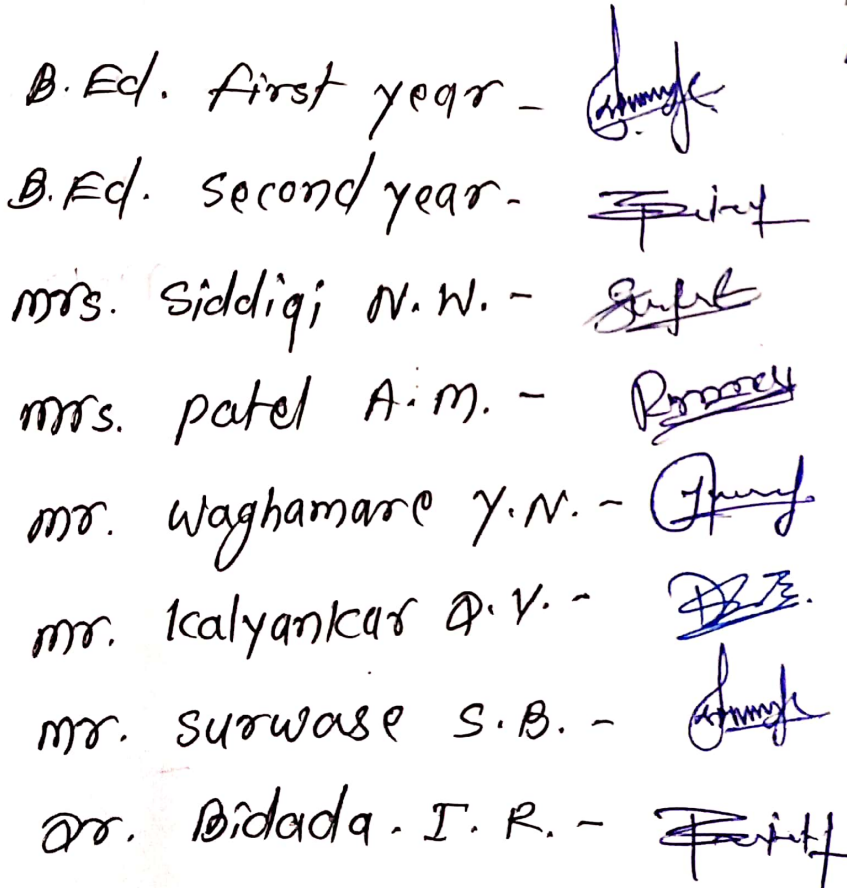 B.Ed. first year -
B.Ed. second year -
mrs. Siddiqi N.W. -
mrs. patel A.M. -
mr. Waghamare Y.N. -
mr. Kalyankar D.V. -
mr. Surwase S.B. -
Dr. Bidada. I. R. -